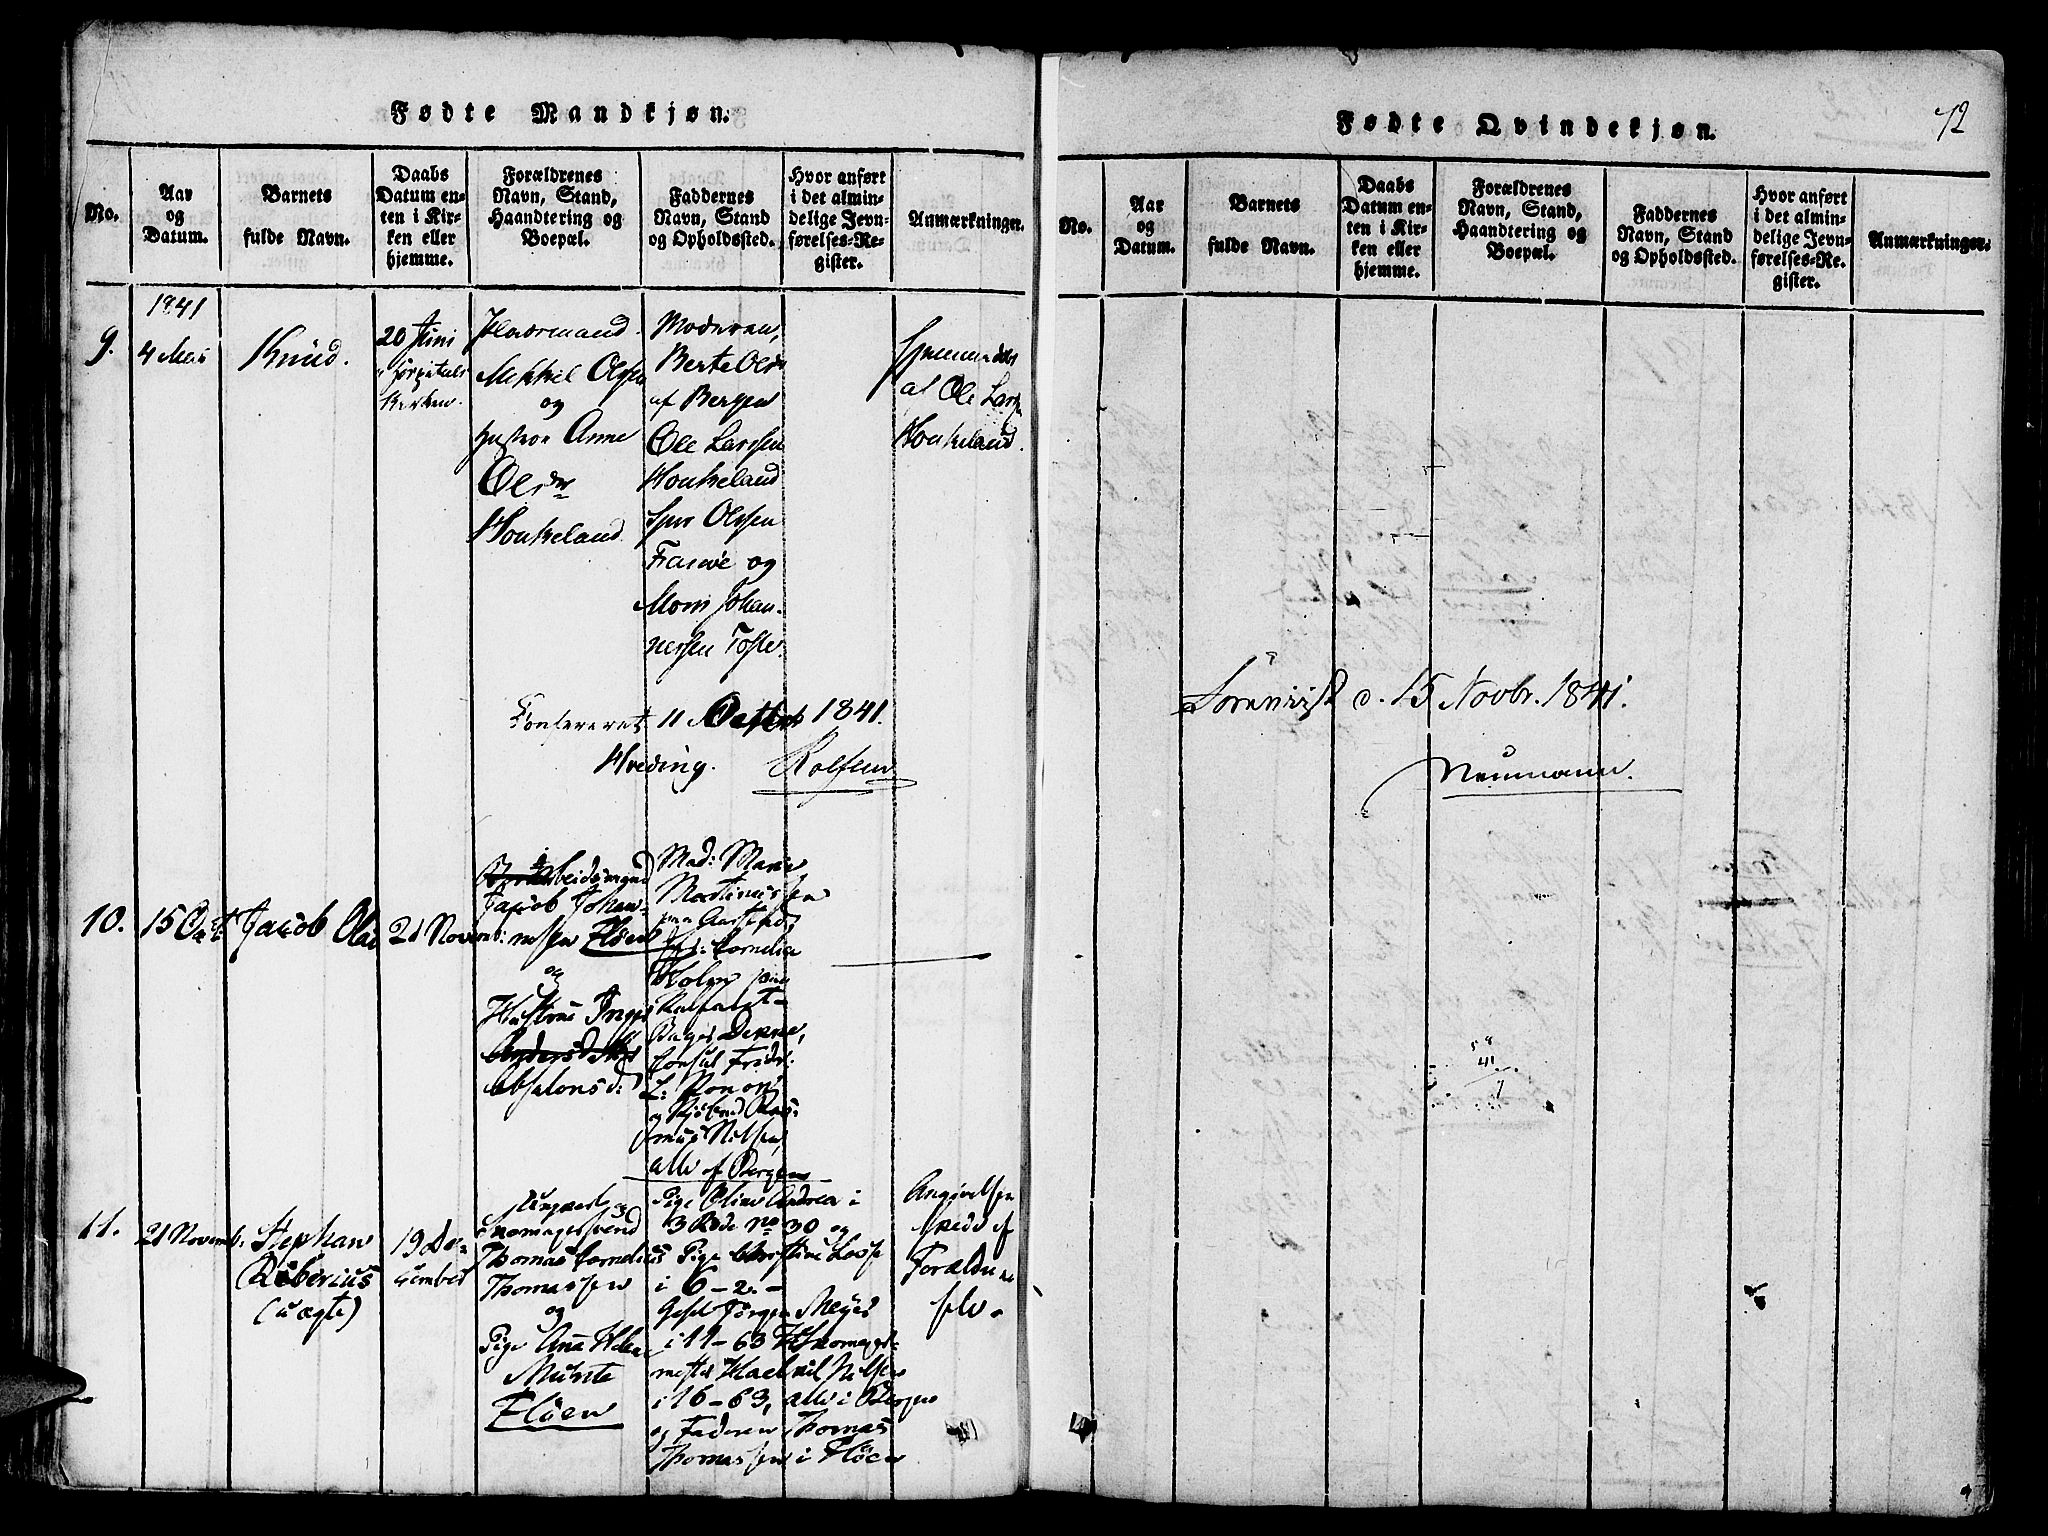 Fødte Mandkjøn.
No.
Aar
og
Datum.
Barnets
fulde Navn.
Daabs
Datum en-
ten i Kir-
ken eller
hjemme.
Forældrenes
Navn, Stand,
Haandtering og
Boepæl.
Faddernes
Navn, Stand
og Opholdssted.
Hvor anført
i det almin-
delige Jevn-
førelses-Re-
gister.
Anmærkninger.
1841
9.
4 Mai
Knud.
20 Juni
Kirken.
Mikkel Olsen
og
Hustroe Anne
Olsdr
Houkeland.
Moderen,
Berte Olsdr
af Bergen
Ole Larssen
Houkeland
Olssen
og
Mons Johan-
nessen Toske.
at Ole Lars
Houkeland.
Confereret 11 1841.
Hveding. Rolfsen
10.
15 Oct
Jacob Olai
21 Novemb:
Arbeidsmand
Jacob Johan-
nesen Fløen
og
Hustrue Inger
Absalonsd:
Mad: Marie
Martinussen
Cornelia
Holm
Consul Fridr:
Nilsen
alle af Bergen
11.
21 Novemb:
Stephan
(uægte)
19 De-
cember
Ungkarl og
Skomagersvend
Thomas Cornelius
Thomassen
og
Pige Ana Helene
Munte
Fløen
Pige Oline Andrea i
3 Rode no 30 og
Pige Christine
i 6 - 2. -
Jørgen Meyer
i 11 - 63 Skomager-
mester Nilsen
i 16 - 63, alle i Bergen
og Faderen Thomas
Thomassen i Fløen
Angivelsen
skede af
Forældrene
selv.
Fødte Qvindekjøn.
72
No.
Aar
og
Datum.
Barnets
fulde Navn.
Daabs
Datum en-
ten i Kir-
ken eller
hjemme.
Forældrenes
Navn, Stand,
Haandtering og
Boepæl.
Faddernes
Navn, Stand
og Opholdssted.
Hvor anført
i det almin-
delige Jevn-
førelses-Re-
gister.
Anmærkninger.
d. 15 Novbr. 1841.
Neumann.